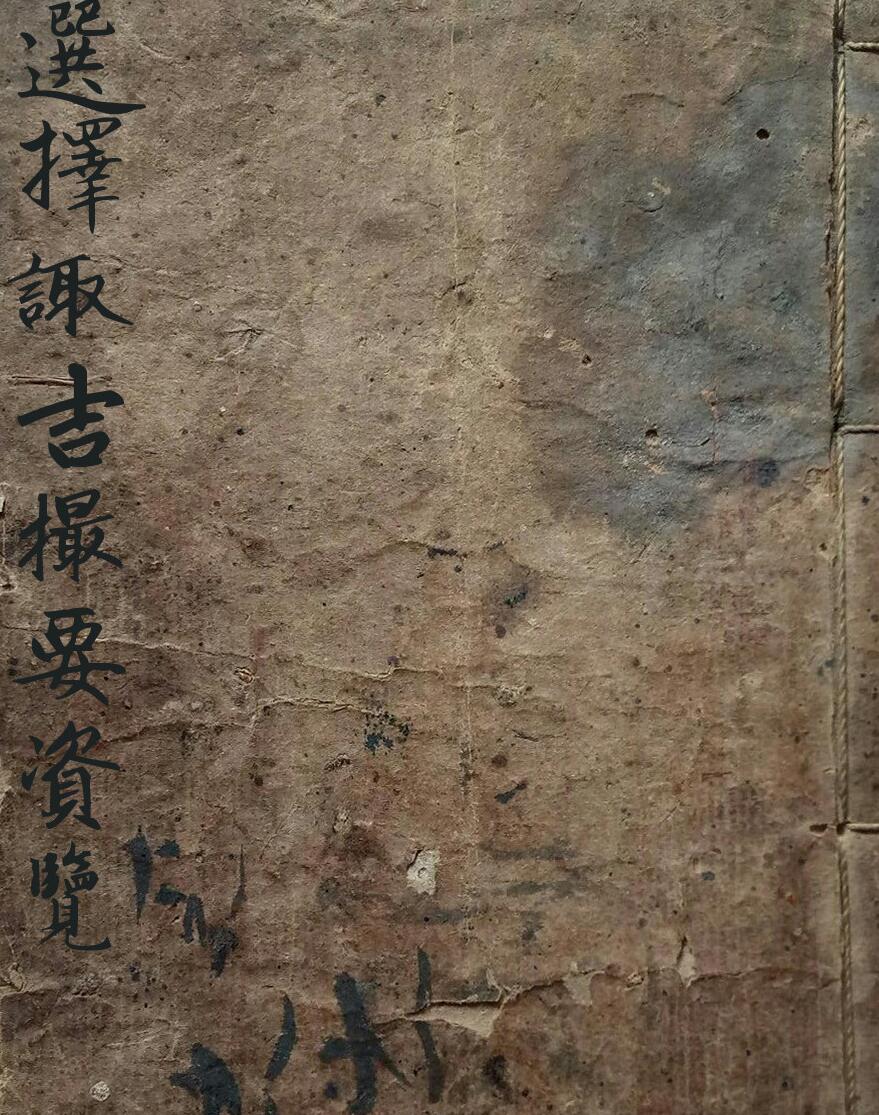 選擇諏吉撮要資覽